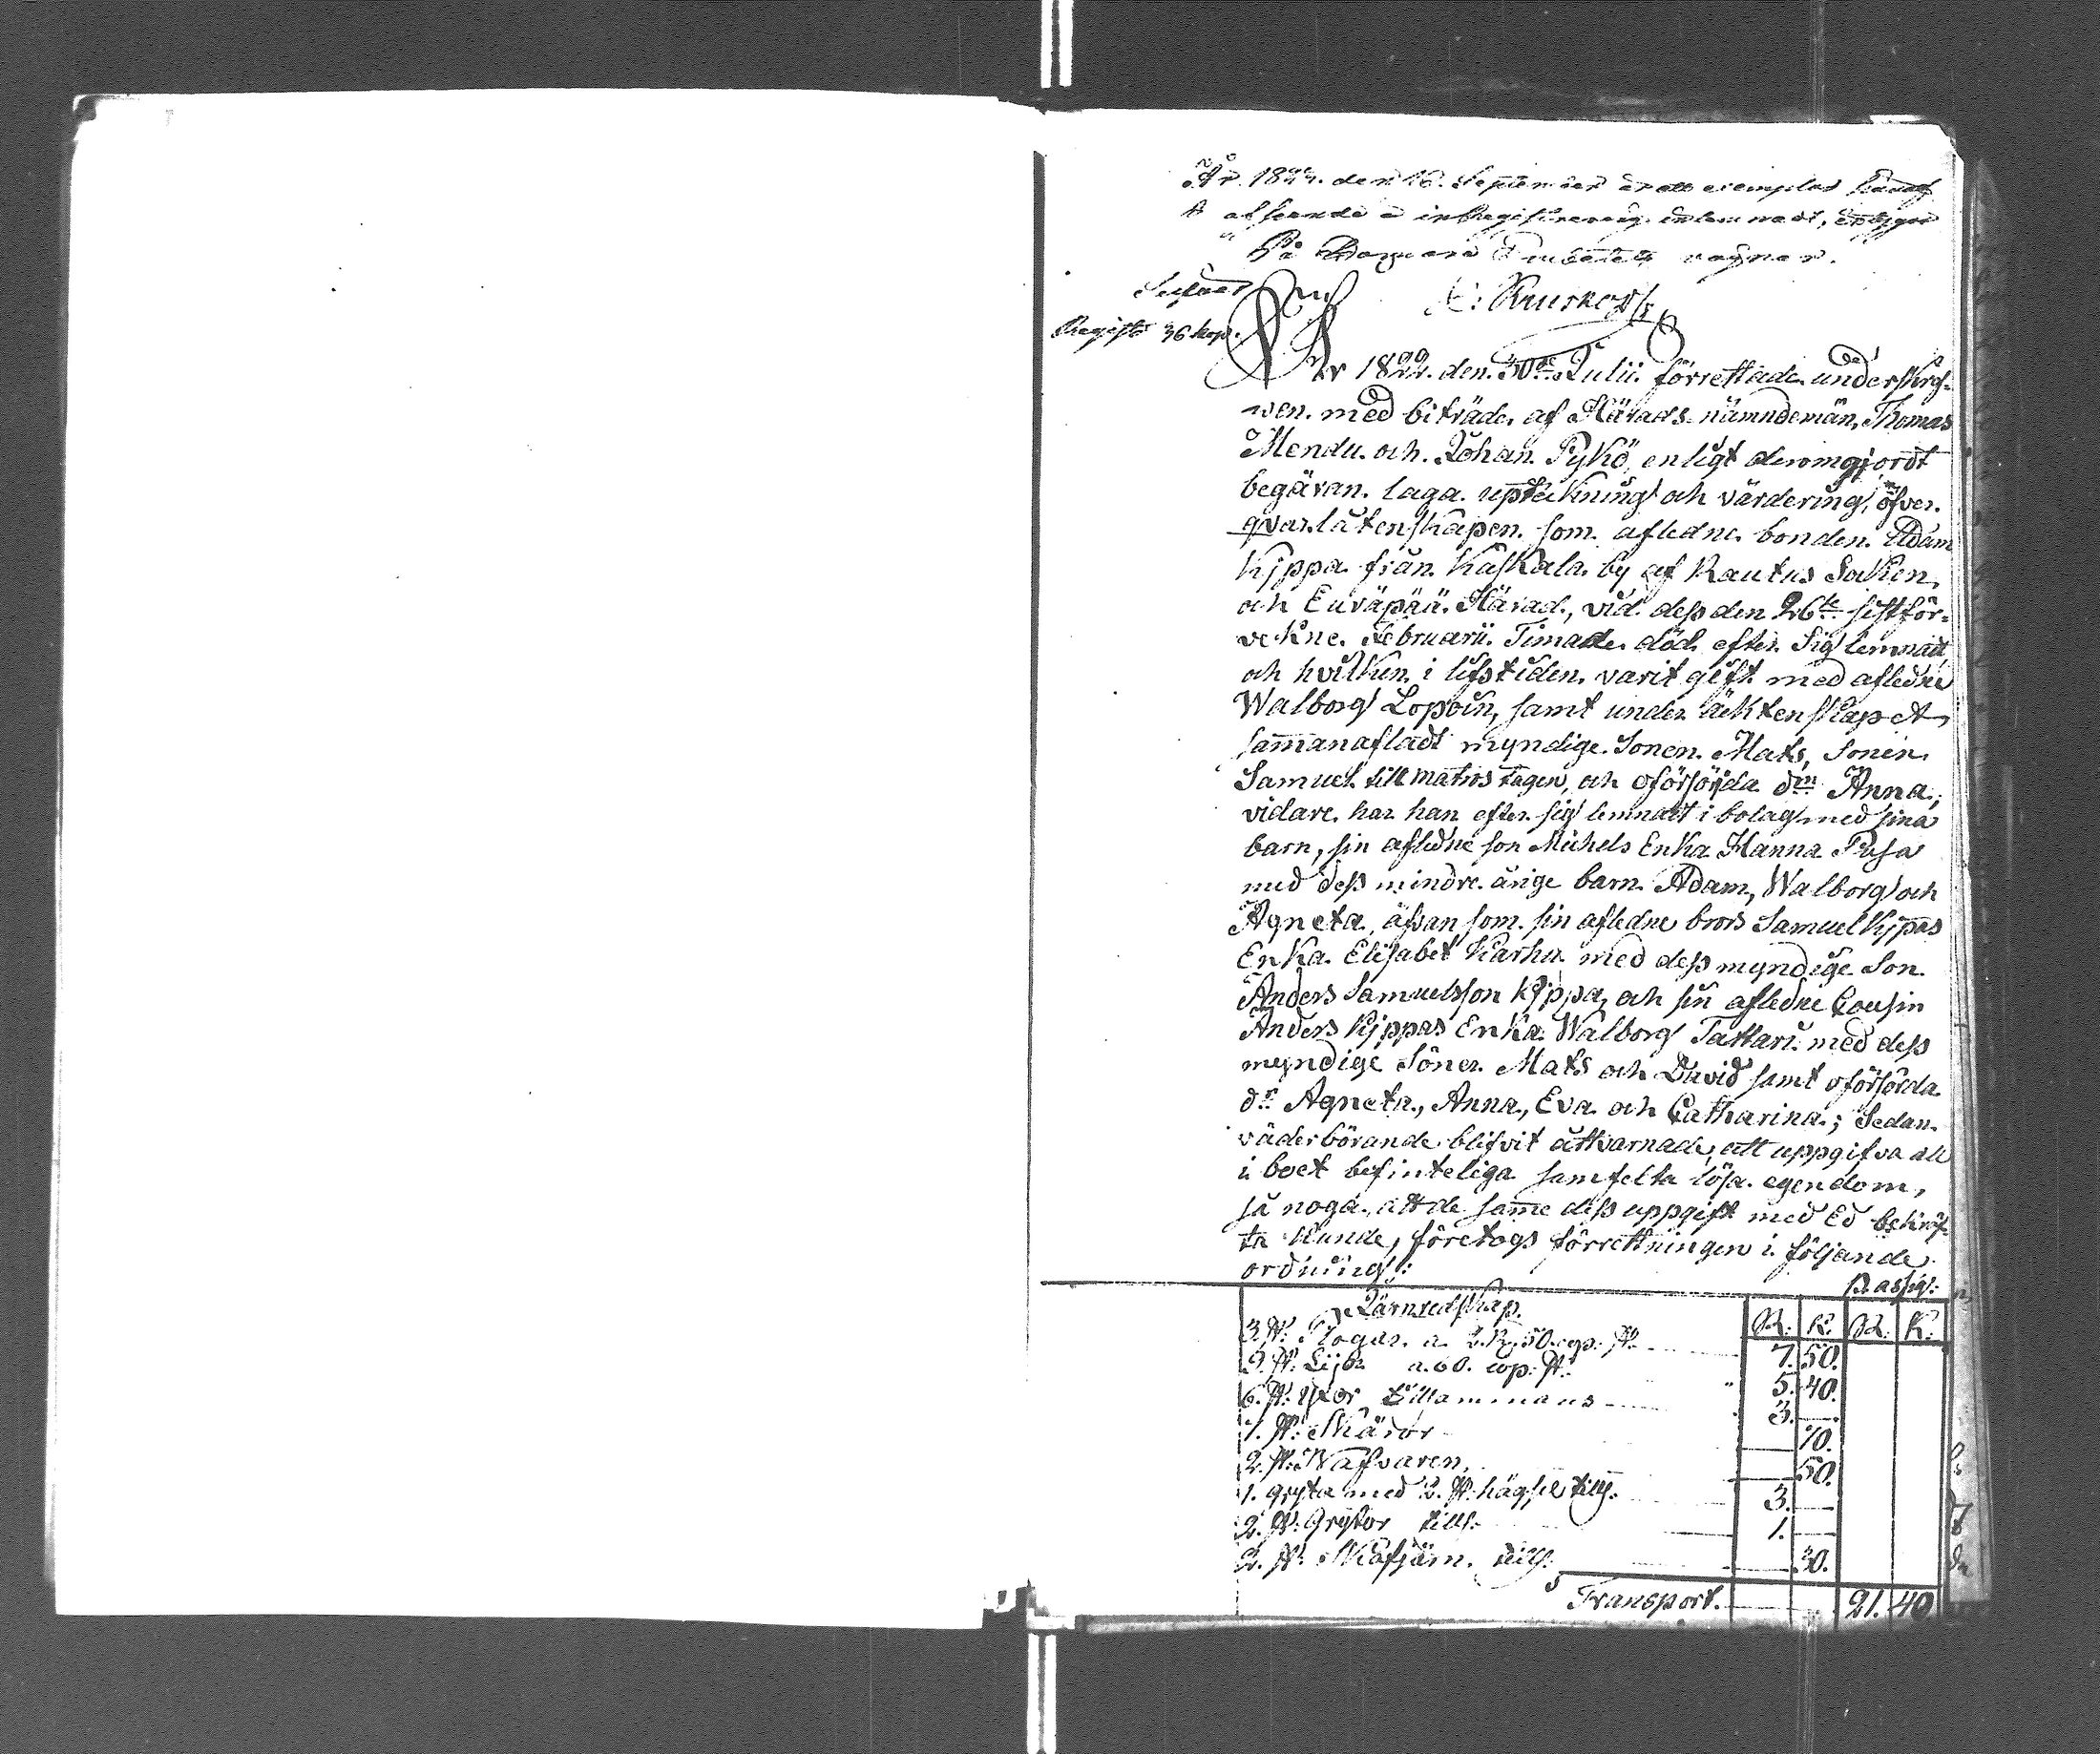 År 1822. den 16. September är ett exemplar häraf
afseende å inregistrering inlemnadt, betygar
På Embetets vägnar.
Registr. 36 kop.
År 1822. den 30de Julii. förrettade underskref-
ven. med biträde. af Härads-nämndemän, Thomas
Mendu. och. Johan. Pykö, enligt deromgjordt
begäran. laga. upteckning och värdering, öfver.
qvarlåtenskapen. som. afledne. bonden. Adam
Kjppa. från. Kaskala. by af Rautus Soken,
och Euräpää. Härad., vid. dess den 26te sistför-
vekne. Februarii. Timade. död. efter. Sig lemnadt,
och hvilken. i lifstiden. varit gift. med afledne
Walborg Lopoin, samt under äktenskapet
sammanafladt myndige. Sonen. Mats, Sonen.
Samuel till matros tagen, och oförsörjda. dn Anna,
vidare. har han efter. sig lemnadt i bolag med sina
barn, sin afledne son Michels Enka Hanna Pusa
med dess mindre. årige barn. Adam, Walborg och
Agneta, äfvan som. sin afledne brors Samuel Kjpas
Enka. Elisabet Karhu med dess myndige Son.
Anders Samuelsson Kjppa, och sin afledne Cousin
Anders Kjppas Enka Walborg Tattari. med dess
myndige Söner. Mats och David samt oförsörda.
dr Agneta., Anna., Eva. och Catharina.; Sedan.
väderbörande. blifvit åttvarnade, att uppgifva all
i boet befinteliga samfelta lösa. egendom,
så noga., att de. same dess uppgift med Ed bekräf-
ta kunde, företogs förrettningen i. följande.
ordning:
B: assig:
Järnredskap. R. K. R. K.
3. st: Plogar. a. 2. R. 50. cop: st. 7. 50.
9. st: Lijor a. 60. cop: st: 5. 40.
6. st: Yxor tillammans 3. —
1. st: Skäror — 70.
2. st: Nafvaren. — 50.
1. gryta med 2. st: tills. 3. —
2. st: Grytor tills: 1. —
2. st: Skafjärn. tills: — 30.
Transport. 21. 40